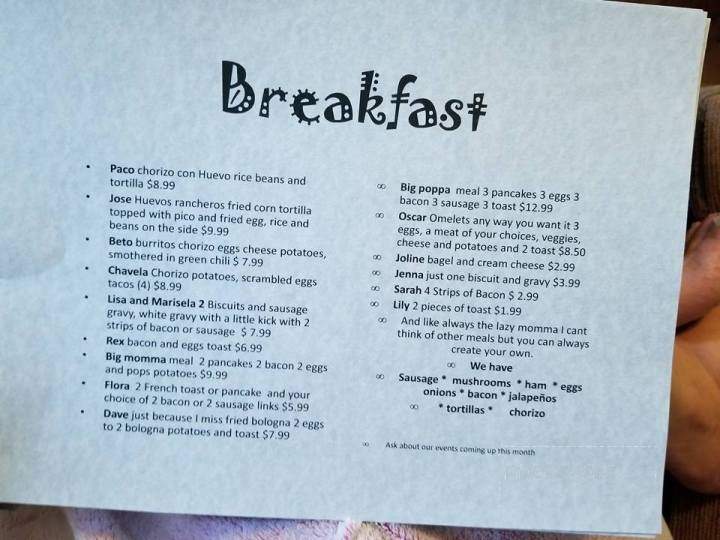 Breakfast
• Paco chorizo con Huevo rice beans and
tortilla $8.99
• Jose Huevos rancheros fried corn tortilla
topped with pico and fried egg, rice and
beans on the side $9.99
• Beto burritos chorizo eggs cheese potatoes,
smothered in green chili $ 7.99
• Chavela Chorizo potatoes, scrambled eggs
tacos (4) $8.99
• Lisa and Marisela 2 Biscuits and sausage
gravy, white gravy with a little kick with 2
strips of bacon or sausage $ 7.99
• Rex bacon and eggs toast $6.99
• Big momma meal 2 pancakes 2 bacon 2 eggs
and pops potatoes $9.99
• Flora 2 French toast or pancake and your
choice of 2 bacon or 2 sausage links $5.99
• Dave just because I miss fried bologna 2 eggs
to 2 bologna potatoes and toast $7.99
∞ Big poppa meal 3 pancakes 3 eggs 3
bacon 3 sausage 3 toast $12.99
∞ Oscar Omelets any way you want it 3
eggs, a meat of your choices, veggies,
cheese and potatoes and 2 toast $8.50
∞ Joline bagel and cream cheese $2.99
∞ Jenna just one biscuit and gravy $3.99
∞ Sarah 4 Strips of Bacon $ 2.99
∞ Lily 2 pieces of toast $1.99
∞ And like always the lazy momma I cant
think of other meals but you can always
create your own.
∞ We have
∞ Sausage * mushrooms * ham * eggs
onions * bacon * jalapeños
∞ * tortillas * chorizo
∞ Ask about our events coming up this month